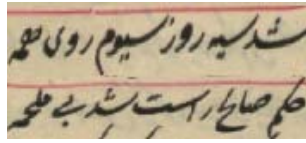 شد سیه روز سیوم روی همه
حکم صالح راست شد بی ملحمه